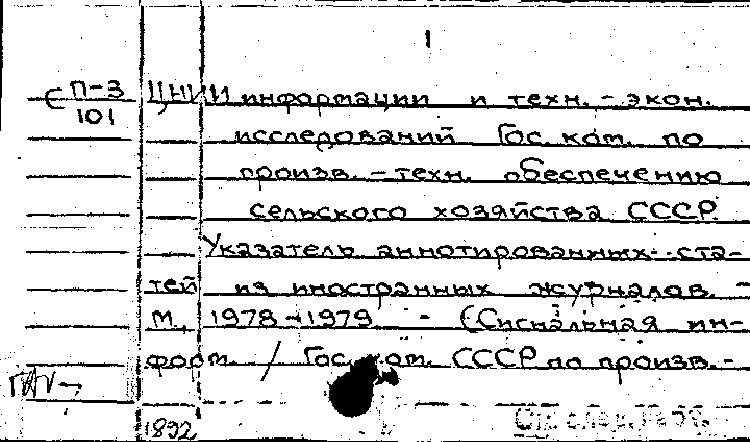 1
С П-3 ЦНИИ информации и техн. - экон.
101
исследований Гос. ком. по
произв. - техн. обеспечению
сельского хозяйства СССР.
Указатель аннотированных ста-
тей из иностранных журналов. -
М., 1978-1979 - (Сигнальная ин-
форм. / Гос. ком. СССР по произв. -
См. след.
1892